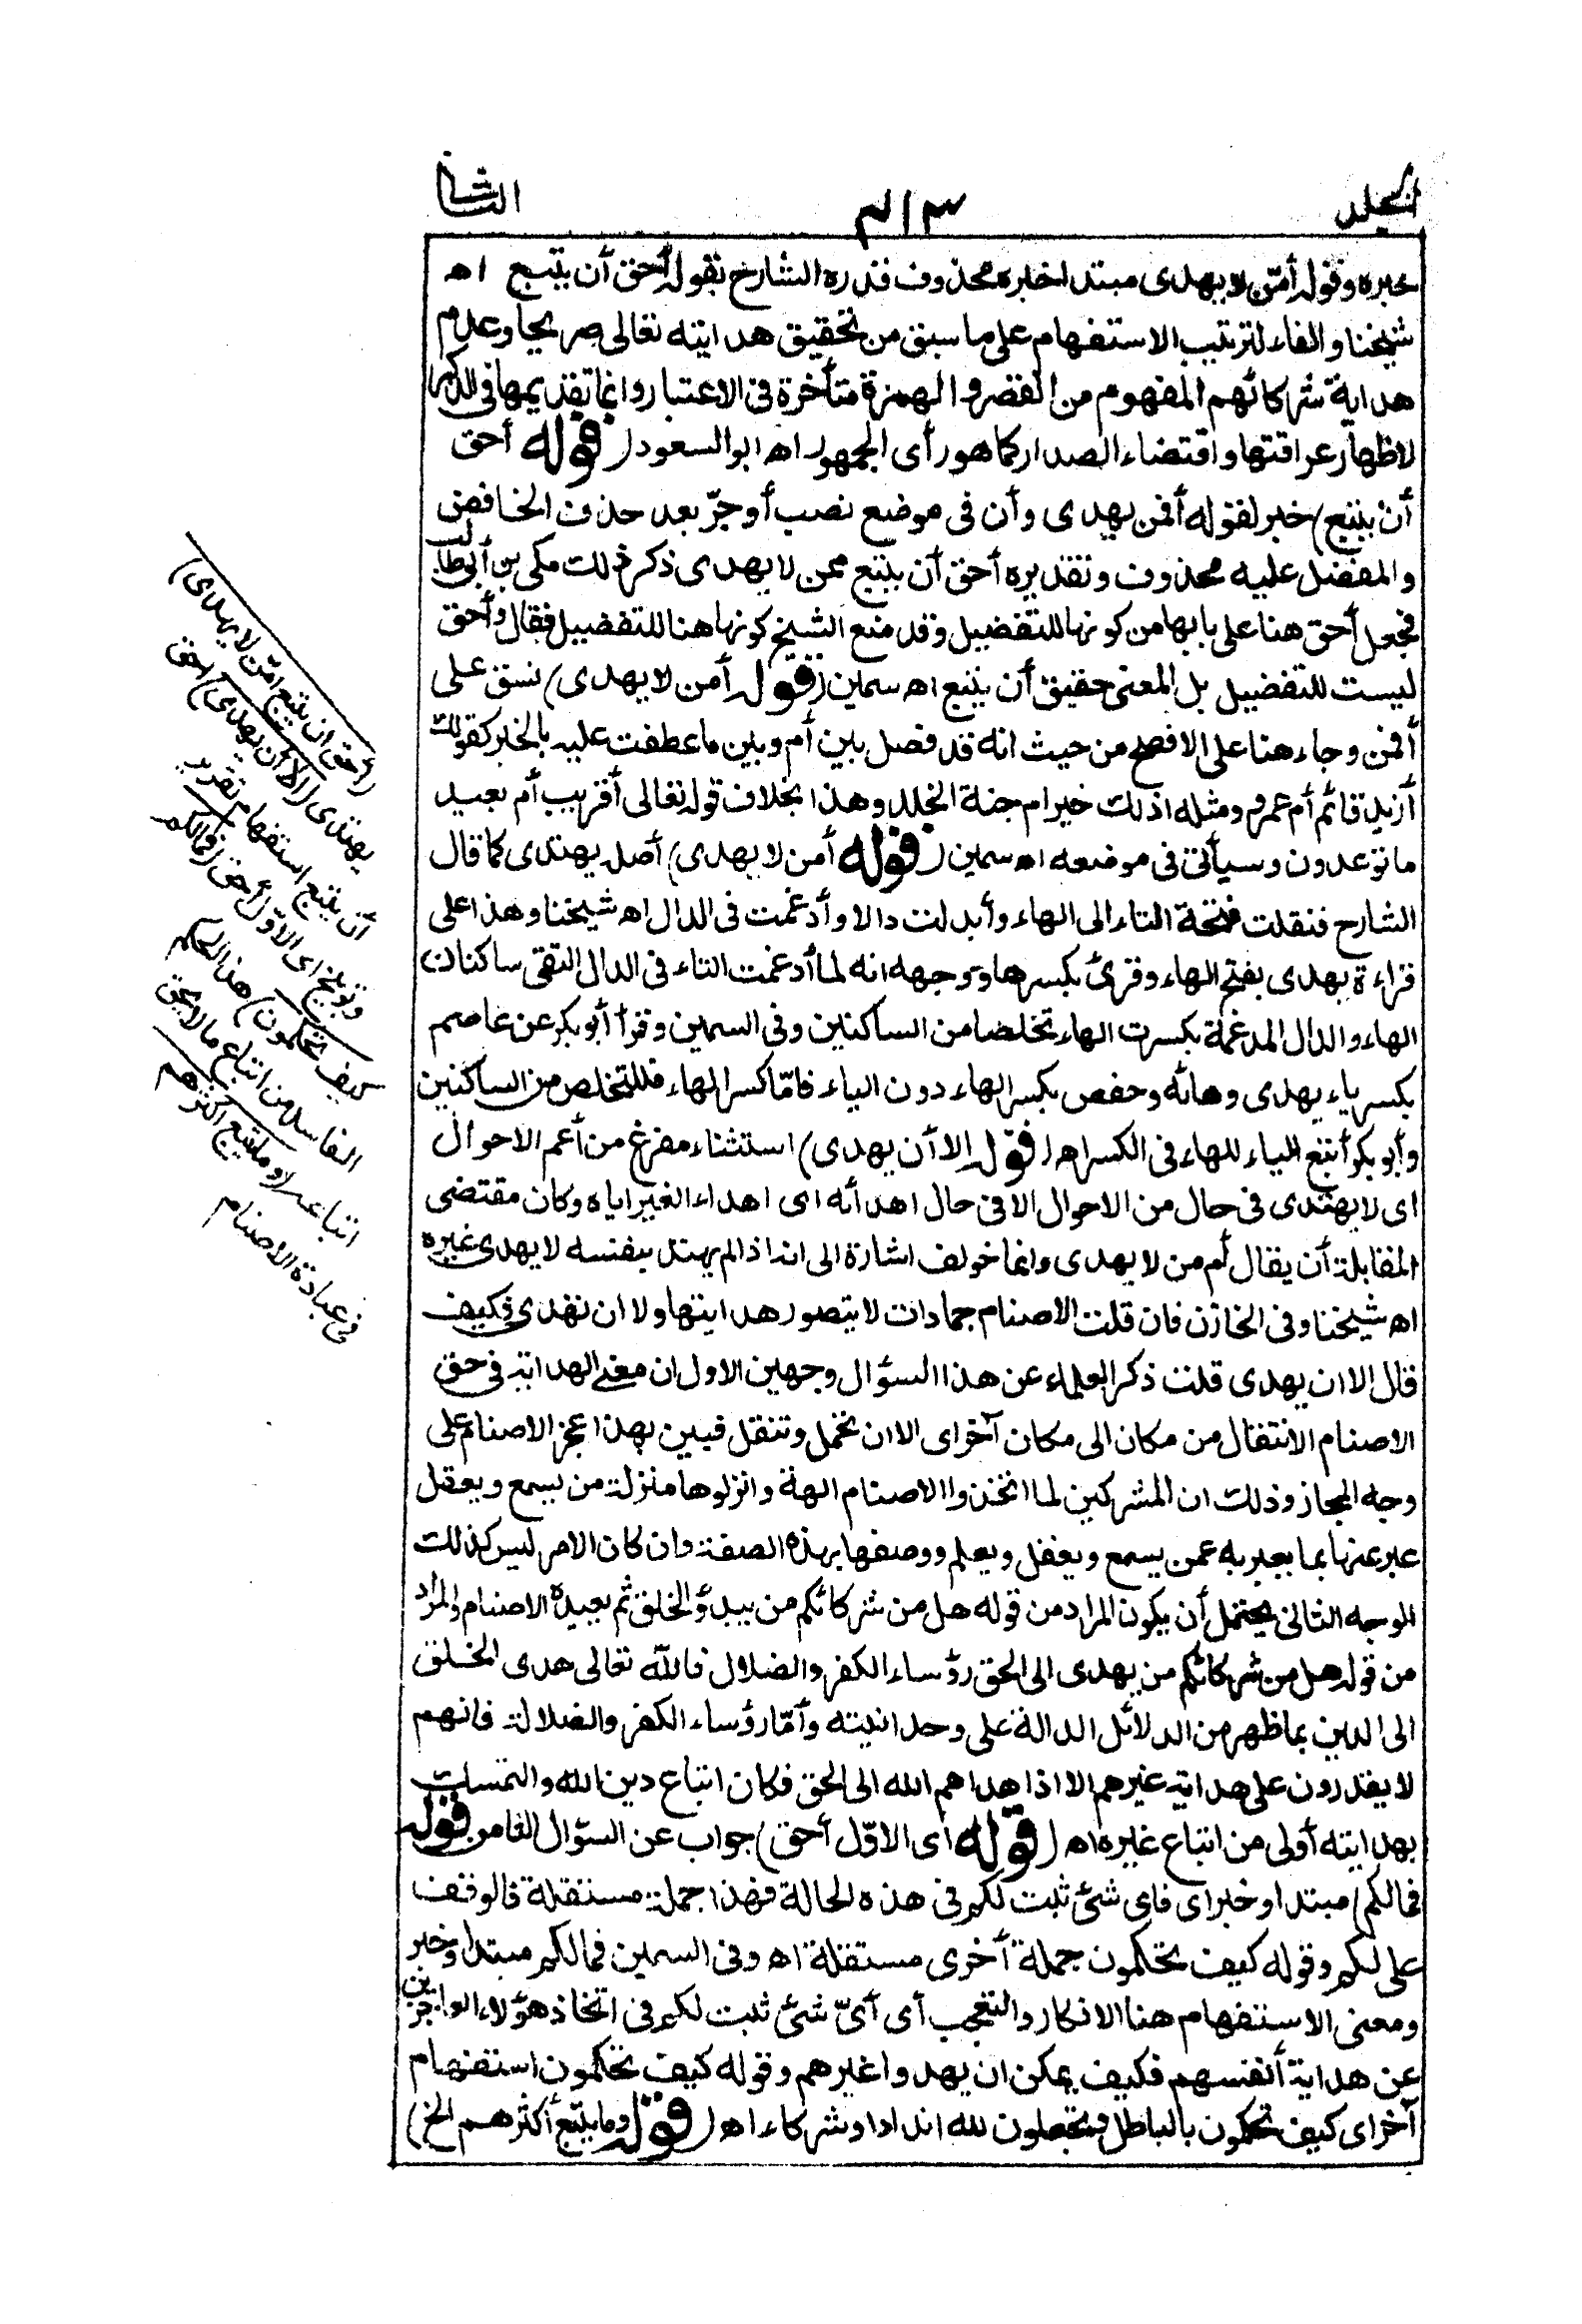 المجلد
٣١٣
الثانى
خبره وقوله أمّن لا يهدى مبتدا خبره محذوف قدره الشارح بقوله أحق أن يتبع اه
شيخنا والفاء لترتيب الاستفهام على ما سبق من تحقيق هدايته تعالى صريحا وعدم
هداية شركائهم المفهوم من القصر والهمزة متأخرة فى الاعتبار وانما تقديمها فى الذكر
لاظهار عراقتها واقتضاء الصدارة كما هو رأى الجمهور اه ابو السعود (قوله أحق
أن يتبع) خبر لقوله أفمن يهدى وأن فى موضع نصب أو جرّ بعد حذف الخافض
والمفضل عليه محذوف وتقديره أحق أن يتبع ممن لا يهدى ذكر ذلك مكى بن أبى طالب
فجعل أحق هنا على بابها من كونها للتفضيل وقد منع الشيخ كونها هنا للتفضيل فقال وأحق
ليست للتفضيل بل المعنى حقيق أن يتبع اه سمين (قوله أمن لا يهدى) نسق على
أفمن وجاء هنا على الافصح من حيث انه قد فصل بين أم وبين ما عطفت عليه بالخبر كقولك
أزيد قائم أم عمرو ومثله اذلك خير ام جنة الخلد وهذا بخلاف قوله تعالى أقريب أم بعيد
ما توعدون وسيأتى فى موضعه اه سمين (قوله أمن لا يهدى) أصله يهتدى كما قال
الشارح فنقلت فتحة التاء الى الهاء وأبدلت دالا وأدغمت فى الدال اه شيخنا وهذا على
قراءة يهدى بفتح الهاء وقرئ بكسرها وتوجهه انه لما أدغمت التاء فى الدال التقى ساكنان
الهاء والدال المدغمة بكسرت الهاء تخلصا من الساكنين وفى السمين وقرأ أبو بكر عن عاصم
بكسر ياء يهدى وهائه وحفص بكسر الهاء دون الياء فامّا كسر الهاء فللتخلص من الساكنين
وأبو بكر أتبع الياء للهاء فى الكسر اه (قوله إلا أن يهدى) استثناء مفرغ من أعم الاحوال
اى لا يهتدى فى حال من الاحوال الا فى حال اهدائه اى اهداء الغير اياه وكان مقتضى
المقابلة أن يقال أم من لا يهدى وانما خولف اشارة الى انه اذا لم يهتد بنفسه لا يهدى غيره
اه شيخنا وفى الخازن فان قلت الاصنام جمادات لا يتصور هدايتها ولا ان تهدى فكيف
قال الا ان يهدى قلت ذكر العلماء عن هذا السؤال وجهين الاول ان معنى الهداية فى حق
الاصنام الانتقال من مكان الى مكان آخر اى الا ان تحمل وتنقل فبين بهذا عجز الاصنام على
وجه المجاز وذلك ان المشركين لما اتخذوا الاصنام الهة وانزلوها منزلة من يسمع ويعقل
عبر عنها بما يعبر به عمن يسمع ويعقل ويعلم ووصفها بهذه الصفة وان كان الامر ليس كذلك
الوجه الثانى يحتمل أن يكون المراد من قوله هل من شركائكم من يبدؤ الخلق ثم يعيده الاصنام والمراد
من قوله هل من شركائكم من يهدى الى الحق رؤساء الكفر والضلال فالله تعالى هدى الخلق
الى الدين بما ظهر من الدلائل الدالة على وحدانيته وأمّا رؤساء الكفر والضلالة فانهم
لا يقدرون على هداية غيرهم الا اذا هداهم الله الى الحق فكان اتباع دين الله والتمسك
بهدايته أولى من اتباع غيره اه (قوله اى الاوّل أحق) جواب عن السؤال الفامن قوله
فمالكم) مبتدا وخبر اى فاى شئ ثبت لكم فى هذه الحالة فهذا جملة مستقلة فالوقف
على لكم وقوله كيف تحكمون جملة أخرى مستقلة اه وفى السمين فمالكم مبتدا وخبر
ومعنى الاستفهام هنا الانكار والتعجب أى أىّ شئ ثبت لكم فى اتخاذ هؤلاء العاجزين
عن هداية أنفسهم فكيف يمكن ان يهدوا غيرهم وقوله كيف تحكمون استفهام
آخر اى كيف تحكمون بالباطل وتجعلون لله اندادا وشركاء اه (قوله وما يتبع أكثرهم الخ)
(أحق ان يتبع امّن لا يهدى)
يهتدى (الا أن يهدى) احق
أن يتبع استفهام تقرير
وتوبيخ اى الاوّل أحق (فمالكم
كيف تحكمون) هذا الحكم
الفاسد من اتباع ما لا يحق
اتباعه (وما يتبع اكثرهم
فى عبادة الاصنام